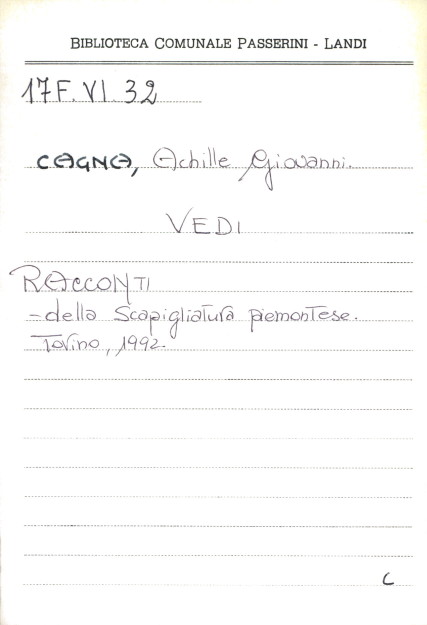 BIBLIOTECA COMUNALE PASSERINI - LANDI
17F. VI. 32
CAGNA, Achille Giovanni.
VEDI
RACCONTI
- della Scapigliatura piemontese.
Torino, 1992.
C